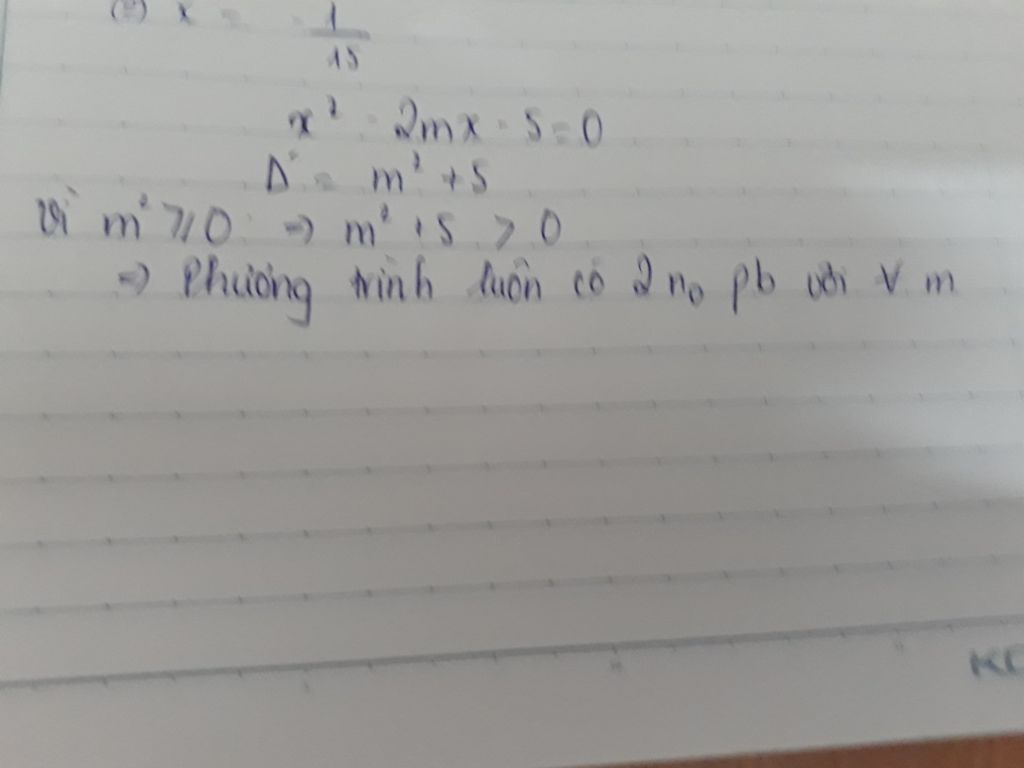 (=) x = 1/15
x² - 2mx - 5 = 0
Δ' = m² + 5
Vì m² ≥ 0 => m² + 5 > 0
=> Phương trình luôn có 2 n₀ pb với ∀ m